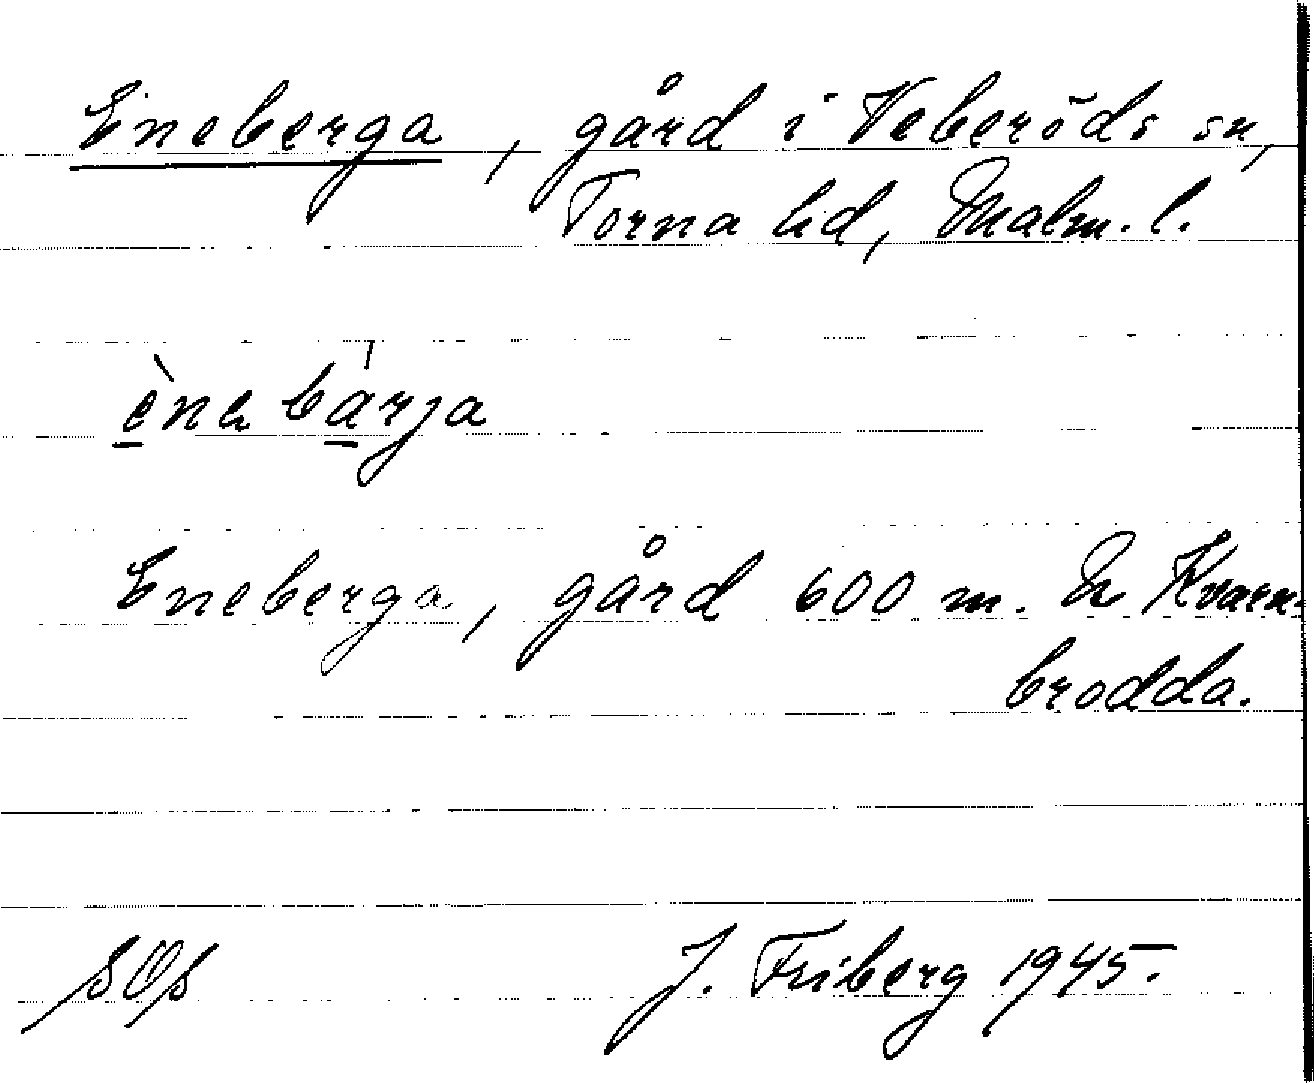 Eneberga, gård i Veberöds sn,
Torna hd, Malm. l.
ènabárja
Eneberga, gård 600 m. N Kvarn-
brodda.
SOs
J. Friberg 1945.